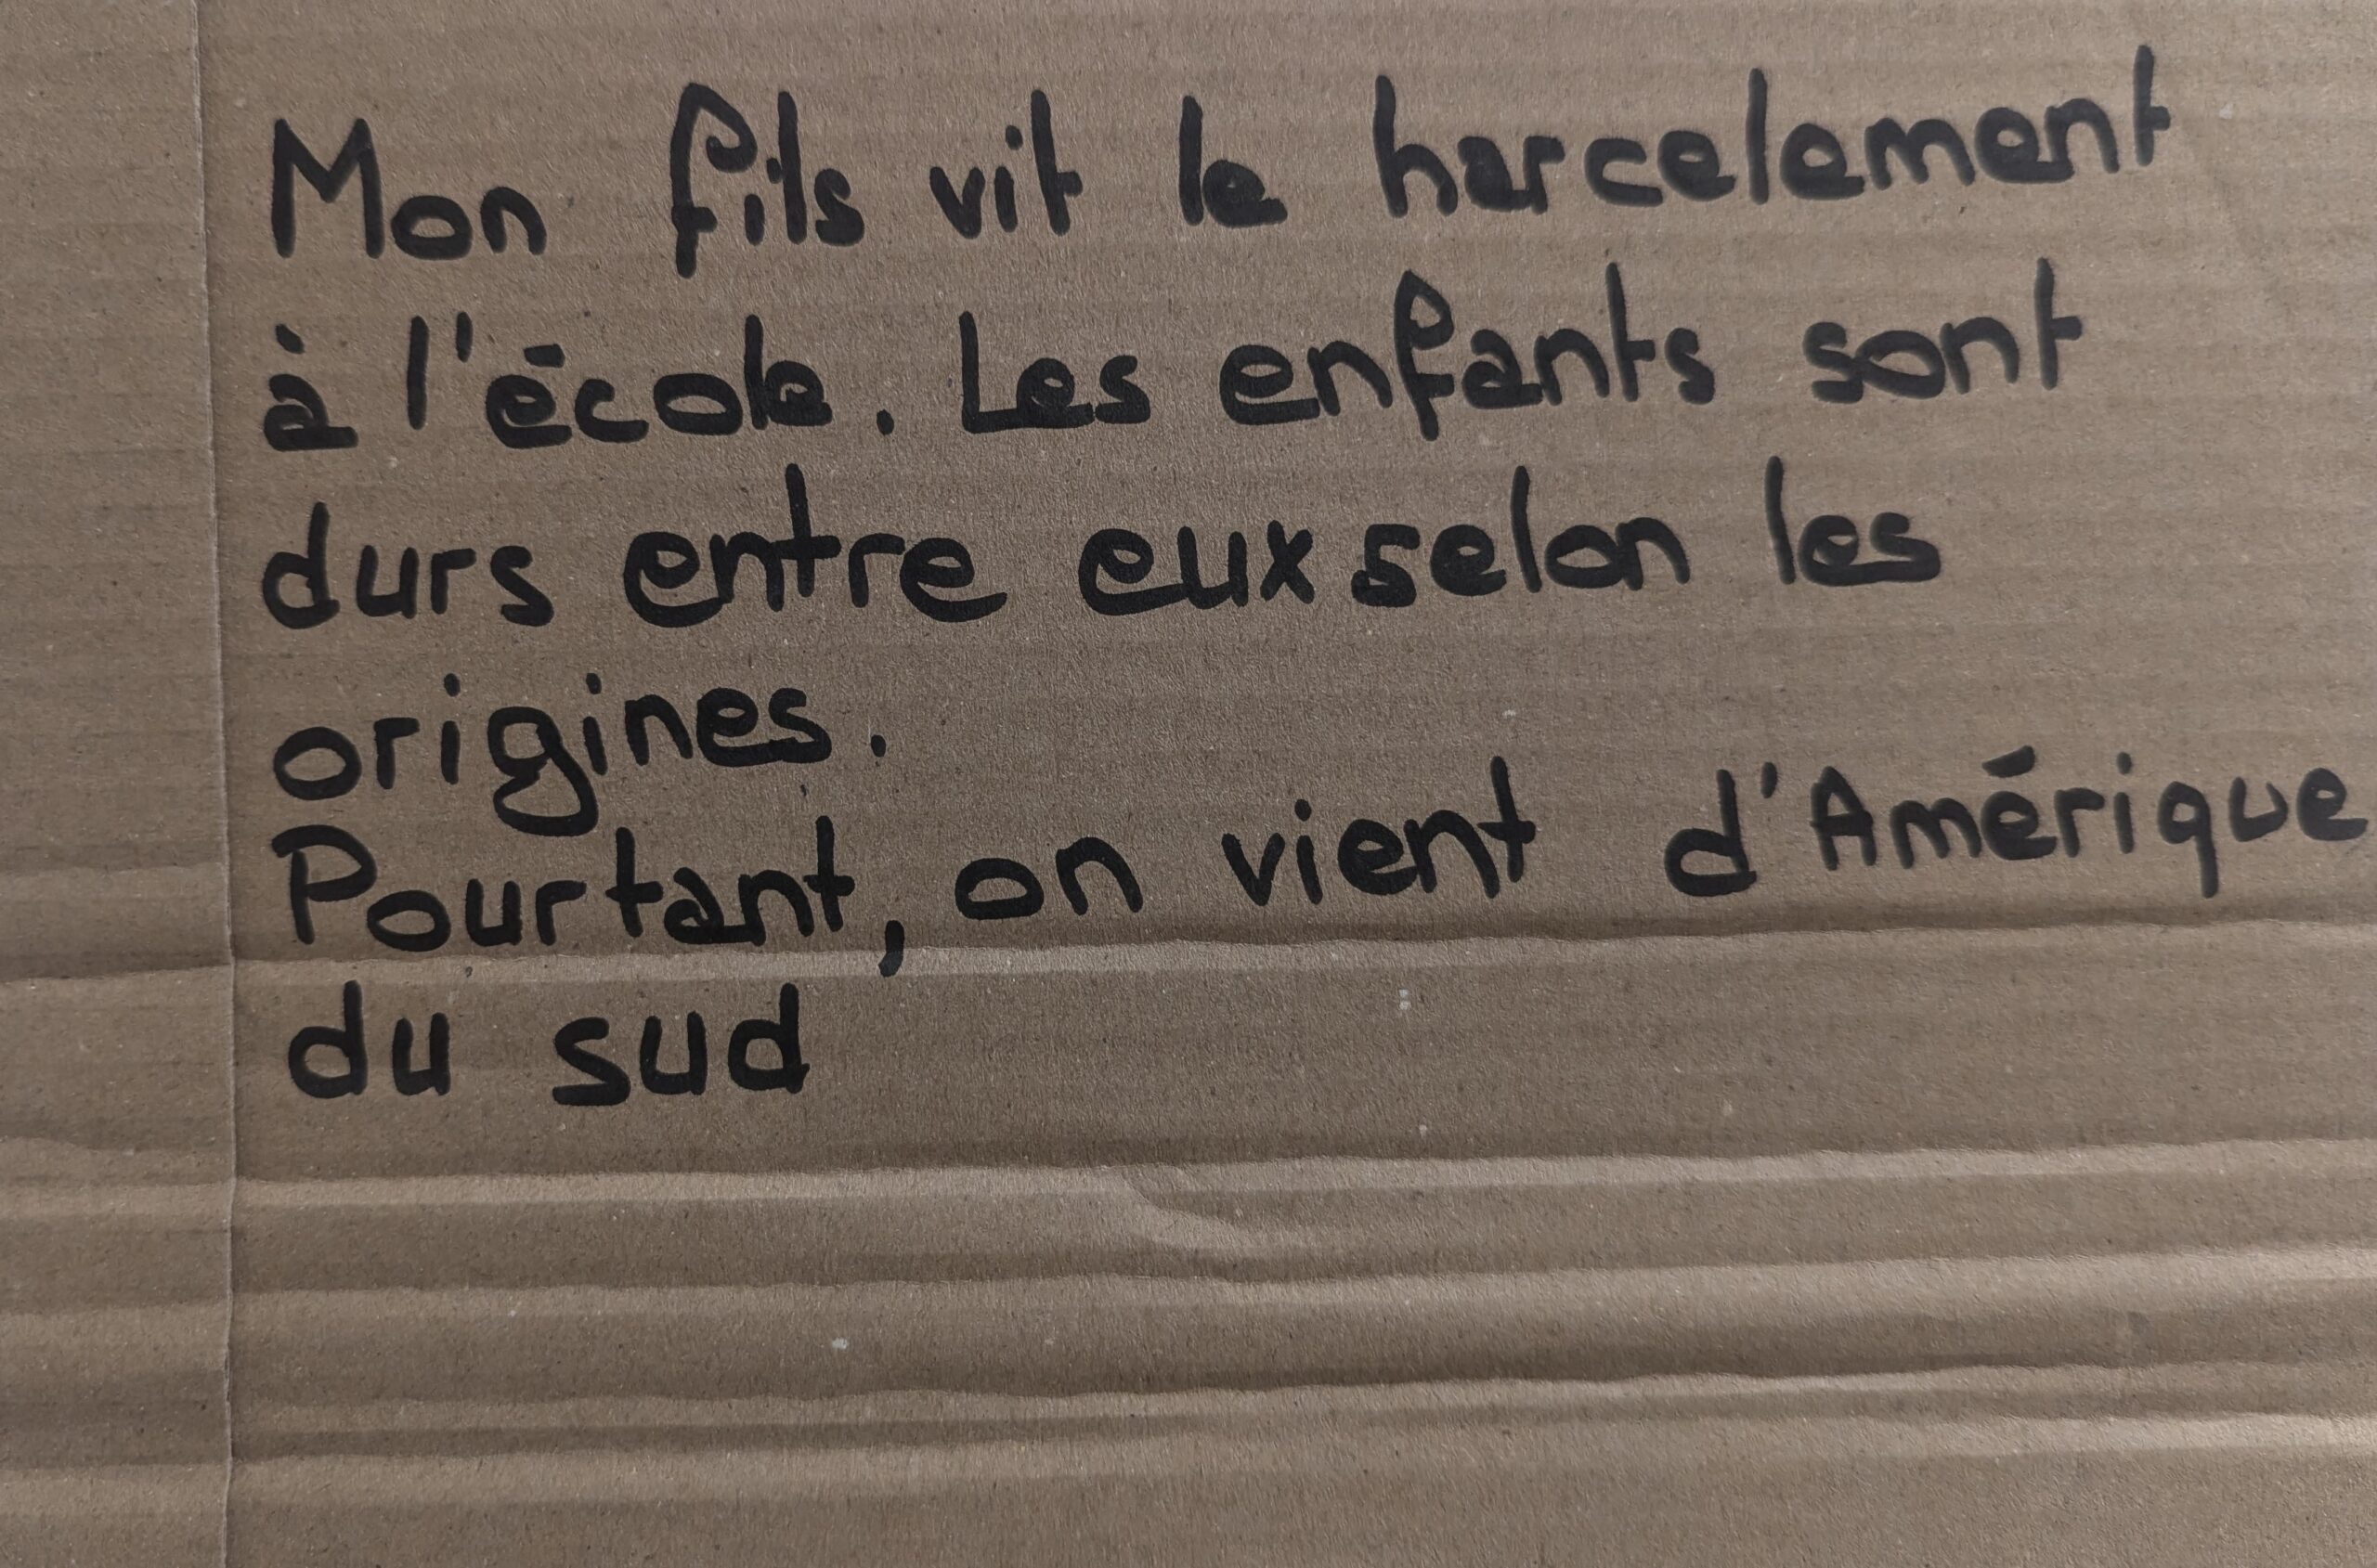 Mon fils vit le harcelement
à l'école. Les enfants sont
durs entre eux selon les
origines.
Pourtant, on vient d'Amérique
du sud